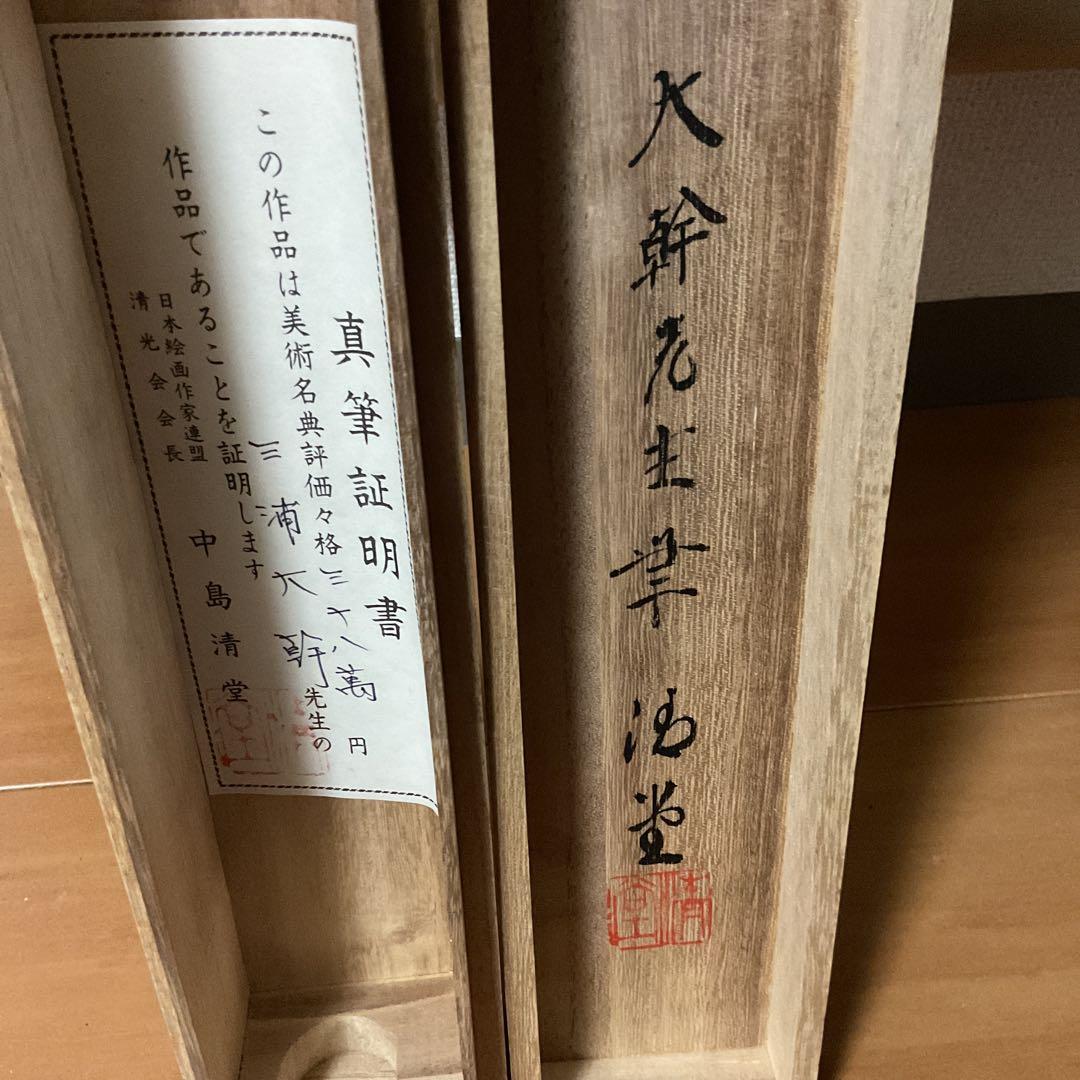 大幹先生筆 清堂
清堂
真筆証明書
この作品は美術名典評価々格三十八萬円
三浦大幹先生の
作品であることを証明します
日本絵画作家連盟
清光会会長
中島清堂